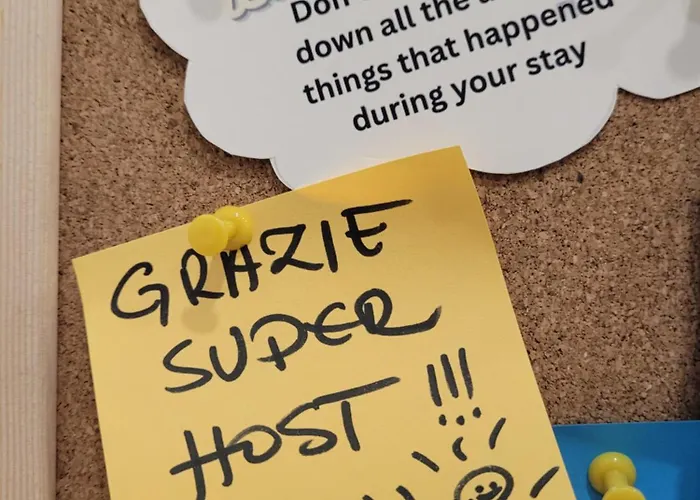 down all the
things that happened
during your stay
GRAZIE
SUPER
HOST !!!